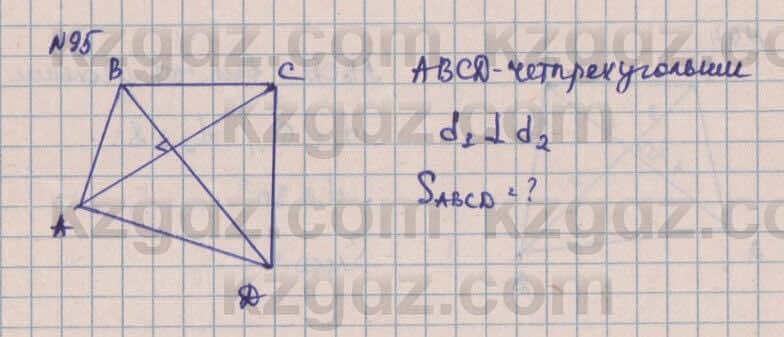 №95
B C
ABCD-четырехугольник
d₁ ⊥ d₂
S_ABCD = ?
A
D
kzgdz.com kzgdz.com
kzgdz.com
kzgdz.com kzgdz.com
kzgdz.com